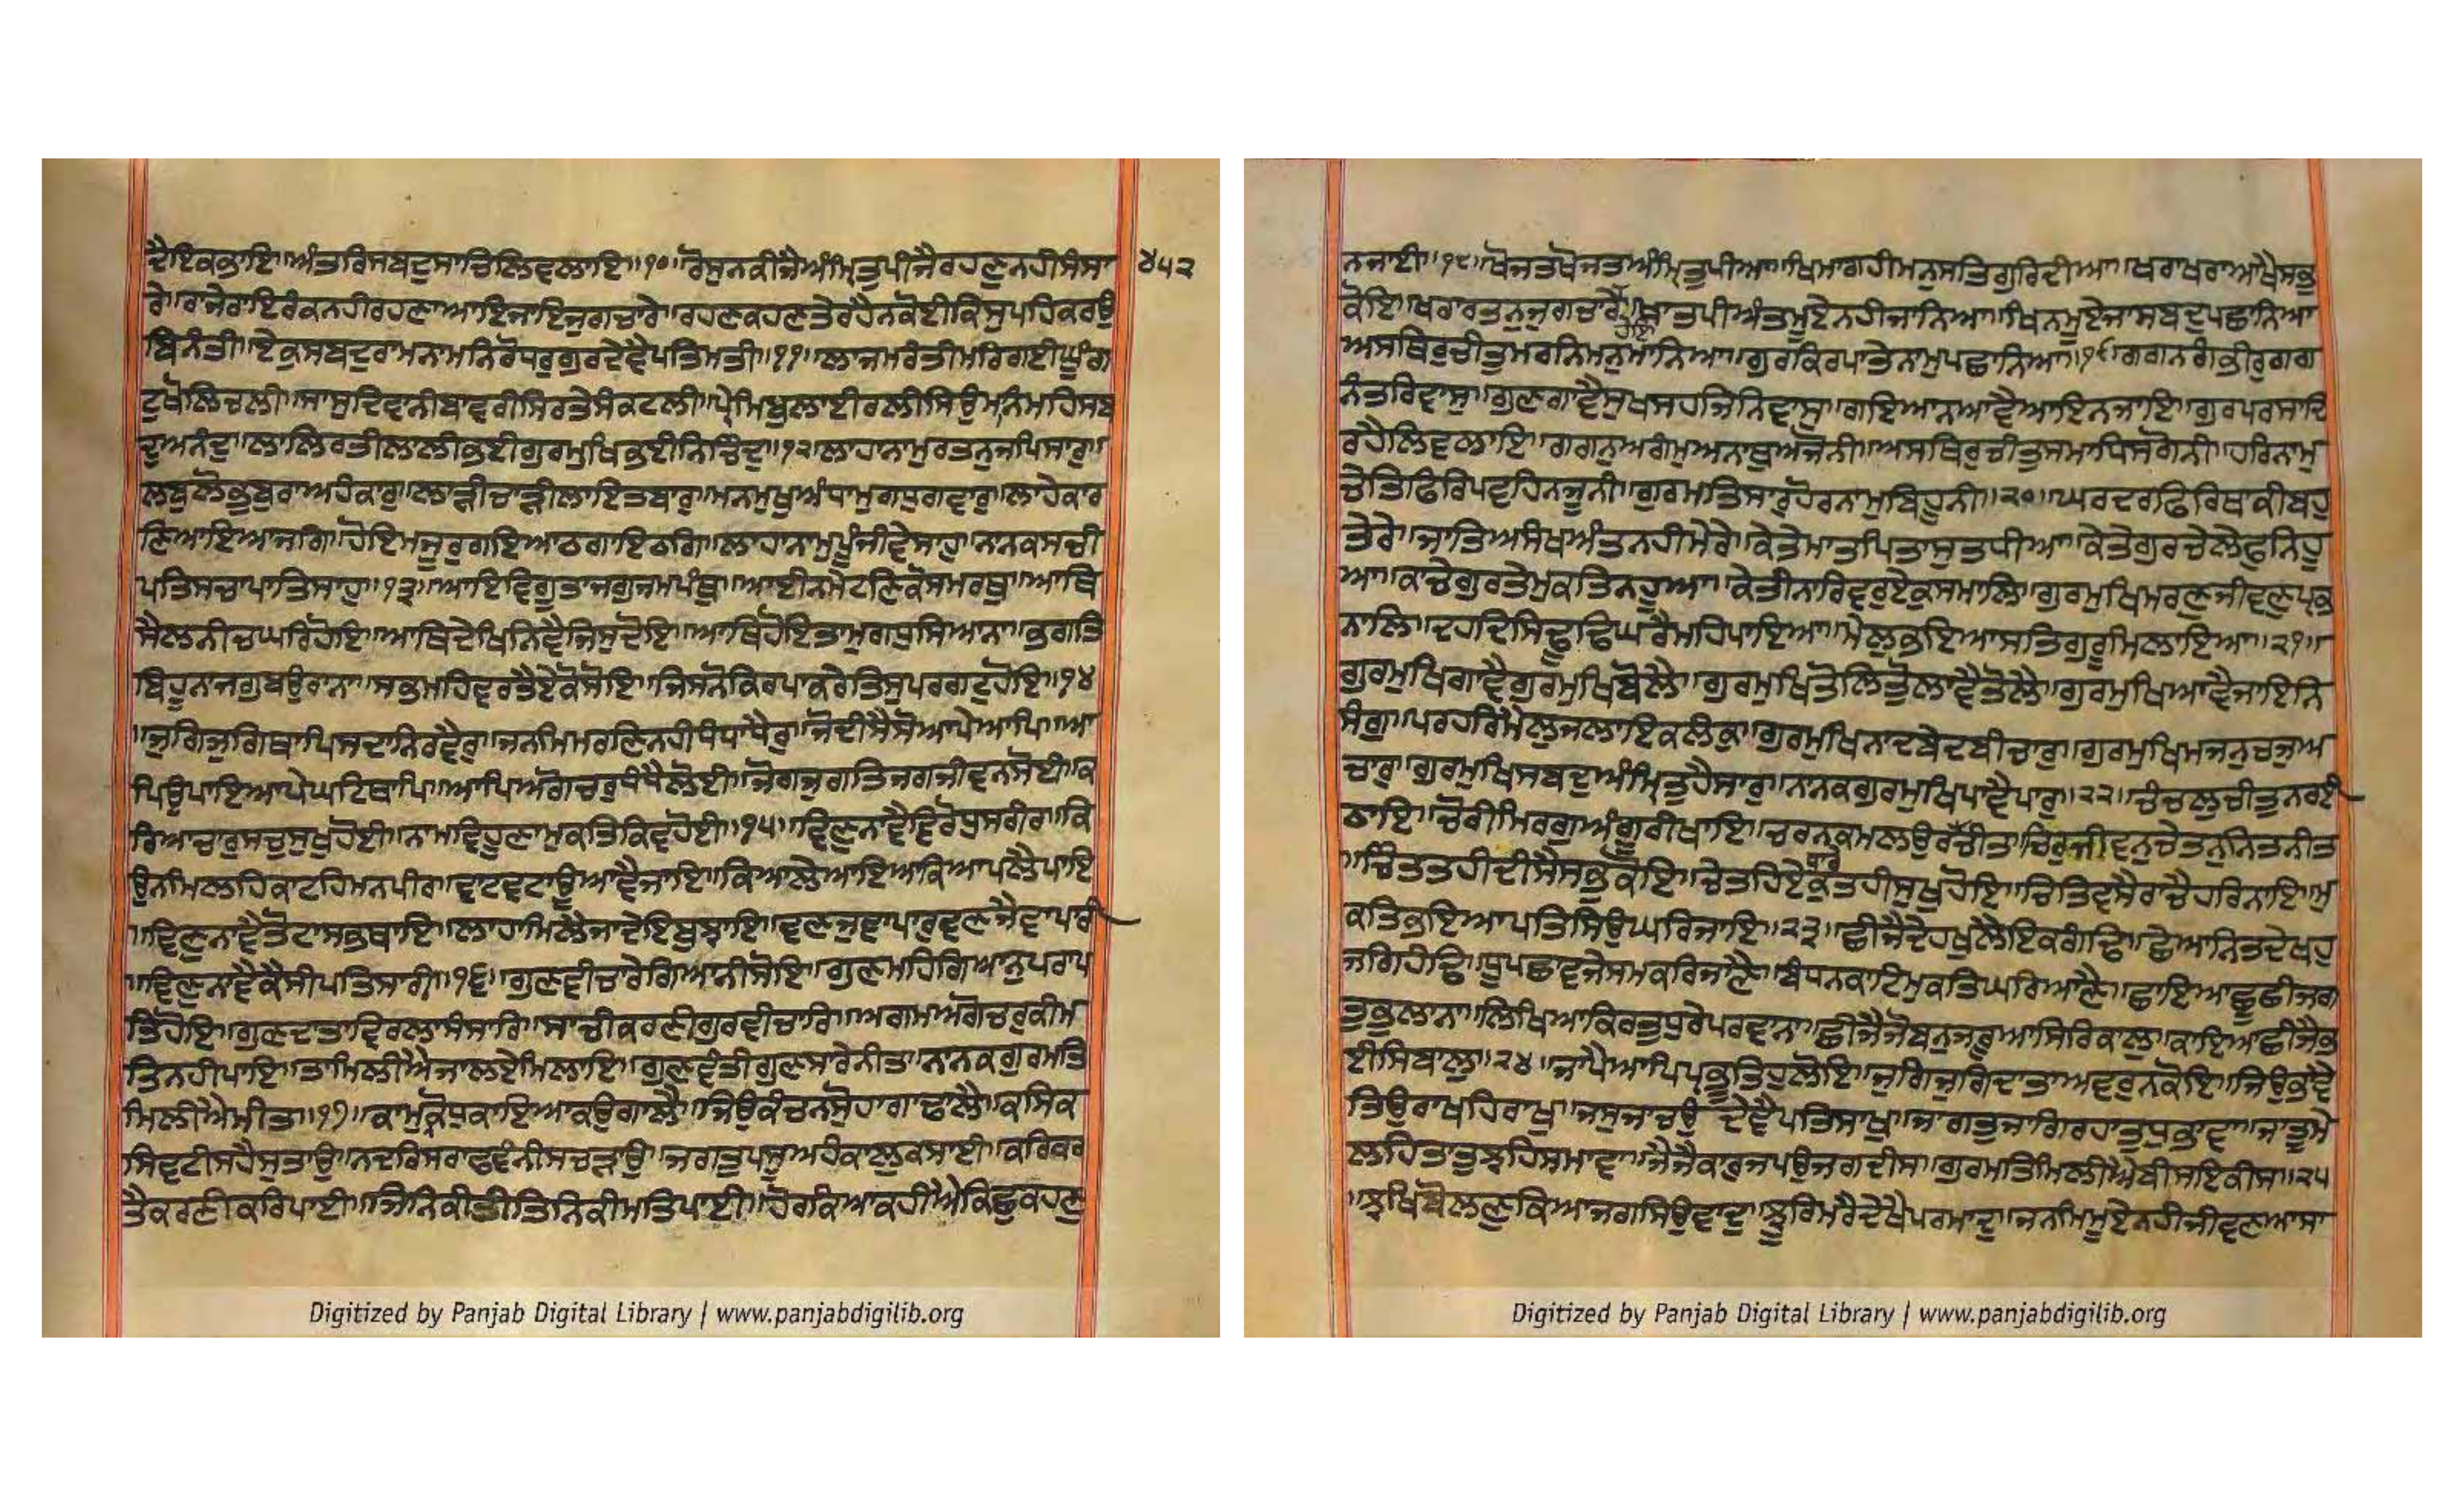 ਦੈਇਕਕਾਇ॥ਅੰਤਰਿਸਬਦੁਸਾਚਿਲਿਵਲਾਇ॥੧੦॥ਰੋਸੁਨਕੀਜੈਅੰਮ੍ਰਿਤੁਪੀਜੈਰਹਣੁਨਹੀਸੰਸਾ
੪੫੨
ਰੇ॥ਰਾਜੇਰਾਇਰੰਕਨਹੀਰਹਣਾਆਇਜਾਇਜੁਗਚਾਰੇ॥ਰਹਣਕਹਣਤੇਰਹੈਨਕੋਈਕਿਸੁਪਹਿਕਰਉ
ਬਿਨੰਤੀ॥ਏਕੁਸਬਦੁਰਾਮਨਾਮਨਿਰੋਧਰੁਗੁਰਦੇਵੈਪਤਿਮਤੀ॥੧੧॥ਲਾਜਮਰੰਤੀਮਰਿਗਈਘੂੰਗ
ਟੁਖੋਲਿਚਲੀ॥ਸਾਸੁਦਿਵਾਨੀਬਾਵਰੀਸਿਰਤੇਸੰਕਟਲੀ॥ਪ੍ਰੇਮਿਬੁਲਾਈਰਲੀਸਿਉਮਨਮਹਿਸਬ
ਦੁਅਨੰਦੁ॥ਲਾਲਿਰਤੀਲਾਲੀਭਈਗੁਰਮੁਖਿਭਈਨਿਚਿੰਦੁ॥੧੨॥ਲਾਹਾਨਾਮੁਰਤਨੁਜਪਿਸਾਰੁ॥
ਲਬੁਲੋਭੁਬੁਰਾਅਹੰਕਾਰੁ॥ਲਾੜੀਚਾੜੀਲਾਇਤਬਾਰੁ॥ਮਨਮੁਖੁਅੰਧਾਮੁਗਧੁਗਵਾਰੁ॥ਲਾਹੇਕਾਰ
ਣਿਆਇਆਜਗਿ॥ਹੋਇਮਜੂਰੁਗਇਆਠਗਾਇਠਗਿ॥ਲਾਹਾਨਾਮੁਪੂੰਜੀਵੇਸਾਹੁ॥ਨਾਨਕਸਚੀ
ਪਤਿਸਚਾਪਾਤਿਸਾਹੁ॥੧੩॥ਆਇਵਿਗੂਤਾਜਗੁਜਮਪੰਥੁ॥ਆਈਨਮੇਟਣਿਕੋਸਮਰਥੁ॥ਆਥਿ
ਸੈਲਨੀਚਘਰਿਹੋਇ॥ਆਥਿਦੇਖਿਨਿਵੈਜਿਸੁਦੋਇ॥ਆਥਿਹੋਇਤਾਮੁਗਧੁਸਿਆਨਾ॥ਭਗਤਿ
ਬਿਹੂਨਾਜਗੁਬਉਰਾਨਾ॥ਸਭਮਹਿਵਰਤੈਏਕੋਸੋਇ॥ਜਿਸਨੋਕਿਰਪਾਕਰੇਤਿਸੁਪਰਗਟੁਹੋਇ॥੧੪
॥ਜੁਗਿਜੁਗਿਥਾਪਿਸਦਾਨਿਰਵੈਰੁ॥ਜਨਮਿਮਰਣਿਨਹੀਧੰਧਾਧੈਰੁ॥ਜੋਦੀਸੈਸੋਆਪੇਆਪਿ॥ਆ
ਪਿਉਪਾਇਆਪੇਘਟਿਥਾਪਿ॥ਆਪਿਅਗੋਚਰੁਧੰਧੈਲੋਈ॥ਜੋਗਜੁਗਤਿਜਗਜੀਵਨਸੋਈ॥ਕ
ਰਿਆਚਾਰੁਸਚੁਸੁਖੁਹੋਈ॥ਨਾਮਵਿਹੂਣਾਮੁਕਤਿਕਿਵਹੋਈ॥੧੫॥ਵਿਣੁਨਾਵੈਵੇਰੋਧੁਸਰੀਰ॥ਕਿ
ਉਨਮਿਲਹਿਕਾਟਹਿਮਨਪੀਰ॥ਵਾਟਵਟਾਊਆਵੈਜਾਇ॥ਕਿਆਲੇਆਇਆਕਿਆਪਲੈਪਾਇ
॥ਵਿਣੁਨਾਵੈਤੋਟਾਸਭਥਾਇ॥ਲਾਹਾਮਿਲੈਜਾਦੇਇਬੁਝਾਇ॥ਵਣਜੁਵਾਪਾਰੁਵਣਜੈਵਾਪਾਰੀ
॥ਵਿਣੁਨਾਵੈਕੈਸੀਪਤਿਸਾਰੀ॥੧੬॥ਗੁਣਵੀਚਾਰੇਗਿਆਨੀਸੋਇ॥ਗੁਣਮਹਿਗਿਆਨੁਪਰਾਪ
ਤਿਹੋਇ॥ਗੁਣਦਾਤਾਵਿਰਲਾਸੰਸਾਰਿ॥ਸਾਚੀਕਰਣੀਗੁਰਵੀਚਾਰਿ॥ਅਗਮਅਗੋਚਰੁਕੀਮ
ਤਿਨਹੀਪਾਇ॥ਤਾਮਿਲੀਐਜਾਲਏਮਿਲਾਇ॥ਗੁਣਵੰਤੀਗੁਣਸਾਰੇਨੀਤ॥ਨਾਨਕਗੁਰਮਤਿ
ਮਿਲੀਐਮੀਤ॥੧੭॥ਕਾਮੁਕ੍ਰੋਧੁਕਾਇਆਕਉਗਾਲੈ॥ਜਿਉਕੰਚਨਸੋਹਾਗਾਢਾਲੈ॥ਕਸਿਕ
ਸਿਵਟੀਸਹੈਸੁਤਾਉ॥ਨਦਰਿਸਰਾਫਵੰਨੀਸਚੜਾਉ॥ਜਗਤੁਪਸੂਅਹੰਕਾਲੁਕਸਾਈ॥ਕਰਿਕਰ
ਤੈਕਰਣੀਕਰਿਪਾਈ॥ਜਿਨਿਕੀਤੀਤਿਨਿਕੀਮਤਿਪਾਈ॥ਹੋਰਕਿਆਕਹੀਐਕਿਛੁਕਹਣੁ
Digitized by Panjab Digital Library | www.panjabdigilib.org
ਨਜਾਈ॥੧੮॥ਖੋਜਤਖੋਜਤਅੰਮ੍ਰਿਤੁਪੀਆ॥ਖਿਮਾਗਹੀਮਨੁਸਤਿਗੁਰਿਦੀਆ॥ਖਰਾਖਰਾਆਖੈਸਭੁ
ਕੋਇ॥ਖਰਾਰਤਨੁਜੁਗਚਾਰੇਹੋਇ॥ਖਾਤਪੀਅੰਤਮੂਏਨਹੀਜਾਨਿਆ॥ਖਿਨਮੂਏਜਾਸਬਦੁਪਛਾਨਿਆ
ਅਸਥਿਰੁਚੀਤੁਮਰਨਿਮਨੁਮਾਨਿਆ॥ਗੁਰਕਿਰਪਾਤੇਨਾਮੁਪਛਾਨਿਆ॥੧੯॥ਗਗਨਗੰਭੀਰੁਗਗ
ਨੰਤਰਿਵਾਸੁ॥ਗੁਣਗਾਵੈਸੁਖਸਹਜਿਨਿਵਾਸੁ॥ਗਇਆਨਆਵੈਆਇਨਜਾਇ॥ਗੁਰਪਰਸਾਦਿ
ਰਹੈਲਿਵਲਾਇ॥ਗਗਨੁਅਗੰਮੁਅਨਾਥੁਅਜੋਨੀ॥ਅਸਥਿਰੁਚੀਤੁਸਮਾਧਿਸਗੋਨੀ॥ਹਰਿਨਾਮੁ
ਚੇਤਿਫਿਰਿਪਵਹਿਨਜੂਨੀ॥ਗੁਰਮਤਿਸਾਰੁਹੋਰਨਾਮੁਬਿਹੂਨੀ॥੨੦॥ਘਰਦਰਫਿਰਿਥਾਕੀਬਹੁ
ਤੇਰੇ॥ਜਾਤਿਅਸੰਖਅੰਤਨਹੀਮੇਰੇ॥ਕੇਤੇਮਾਤਪਿਤਾਸੁਤਧੀਆ॥ਕੇਤੇਗੁਰਚੇਲੇਫੁਨਿਹੂ
ਆ॥ਕਾਚੇਗੁਰਤੇਮੁਕਤਿਨਹੂਆ॥ਕੇਤੀਨਾਰਿਵਰੁਏਕੁਸਮਾਲਿ॥ਗੁਰਮੁਖਿਮਰਣੁਜੀਵਣੁਪ੍ਰਭ
ਨਾਲਿ॥ਦਹਦਿਸਿਢੂਢਿਘਰੈਮਹਿਪਾਇਆ॥ਮੇਲੁਭਇਆਸਤਿਗੁਰੂਮਿਲਾਇਆ॥੨੧॥
ਗੁਰਮੁਖਿਗਾਵੈਗੁਰਮੁਖਿਬੋਲੈ॥ਗੁਰਮੁਖਿਤੋਲਿਤੋੁਲਾਵੈਤੋਲੈ॥ਗੁਰਮੁਖਿਆਵੈਜਾਇਨਿ
ਸੰਗੁ॥ਪਰਹਰਿਮੈਲੁਜਲਾਇਕਲੰਕੁ॥ਗੁਰਮੁਖਿਨਾਦਬੇਦਬੀਚਾਰੁ॥ਗੁਰਮੁਖਿਮਜਨੁਚਜੁਅ
ਚਾਰੁ॥ਗੁਰਮੁਖਿਸਬਦੁਅੰਮ੍ਰਿਤੁਹੈਸਾਰੁ॥ਨਾਨਕਗੁਰਮੁਖਿਪਾਵੈਪਾਰੁ॥੨੨॥ਚੰਚਲੁਚੀਤੁਨਰਹਈ
ਠਾਇ॥ਚੋਰੀਮਿਰਗੁਅੰਗੂਰੀਖਾਇ॥ਚਰਨਕਮਲਉਰਧਾਰੇਚੀਤ॥ਚਿਰੁਜੀਵਨੁਚੇਤਨੁਨਿਤਨੀਤ
॥ਚਿੰਤਤਹੀਦੀਸੈਸਭੁਕੋਇ॥ਚੇਤਹਿਏਕੁਤਹੀਸੁਖੁਹੋਇ॥ਚਿਤਿਵਸੈਰਾਚੈਹਰਿਨਾਇ॥ਮੁ
ਕਤਿਭਇਆਪਤਿਸਿਉਘਰਿਜਾਇ॥੨੩॥ਛੀਜੈਦੇਹਖੁਲੈਇਕਗੰਢਿ॥ਛੇਆਨਿਤਦੇਖਹੁ
ਜਗਿਹੰਢਿ॥ਧੂਪਛਾਵਜੇਸਮਕਰਿਜਾਣੈ॥ਬੰਧਨਕਾਟਿਮੁਕਤਿਘਰਿਆਣੈ॥ਛਾਇਆਛੂਛੀਜਗ
ਤੁਭੁਲਾਨਾ॥ਲਿਖਿਆਕਿਰਤੁਧੁਰੇਪਰਵਾਨਾ॥ਛੀਜੈਜੋਬਨੁਜਰੂਆਸਿਰਿਕਾਲੁ॥ਕਾਇਆਛੀਜੈਭ
ਈਸਿਬਾਲੁ॥੨੪॥ਜਾਪੈਆਪਿਪ੍ਰਭੂਤਿਹੁਲੋਇ॥ਜੁਗਿਜੁਗਿਦਾਤਾਅਵਰੁਨਕੋਇ॥ਜਿਉਭਾਵੈ
ਤਿਉਰਾਖਹਿਰਾਖੁ॥ਜਸੁਜਾਚਉਦੇਵੈਪਤਿਸਾਖੁ॥ਜਾਗਤੁਜਾਗਿਰਹਾਤੁਧੁਭਾਵਾ॥ਜਾਤੂਮੇ
ਲਹਿਤਾਤੁਝਹਿਸਮਾਵਾ॥ਜੈਜੈਕਾਰੁਜਪਉਜਗਦੀਸ॥ਗੁਰਮਤਿਮਿਲੀਐਬੀਸਇਕੀਸ॥੨੫
॥ਝਖਿਬੋਲਣੁਕਿਆਜਗਸਿਉਵਾਦੁ॥ਝੂਰਿਮਰੈਦੇਖੈਪਰਮਾਦੁ॥ਜਨਮਿਮੂਏਨਹੀਜੀਵਣਆਸਾ
Digitized by Panjab Digital Library | www.panjabdigilib.org